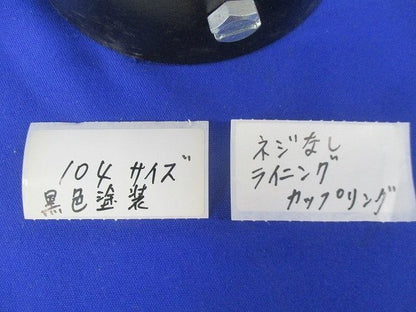 104サイズ
黒色塗装
ネジなし
ライニング
カップリング